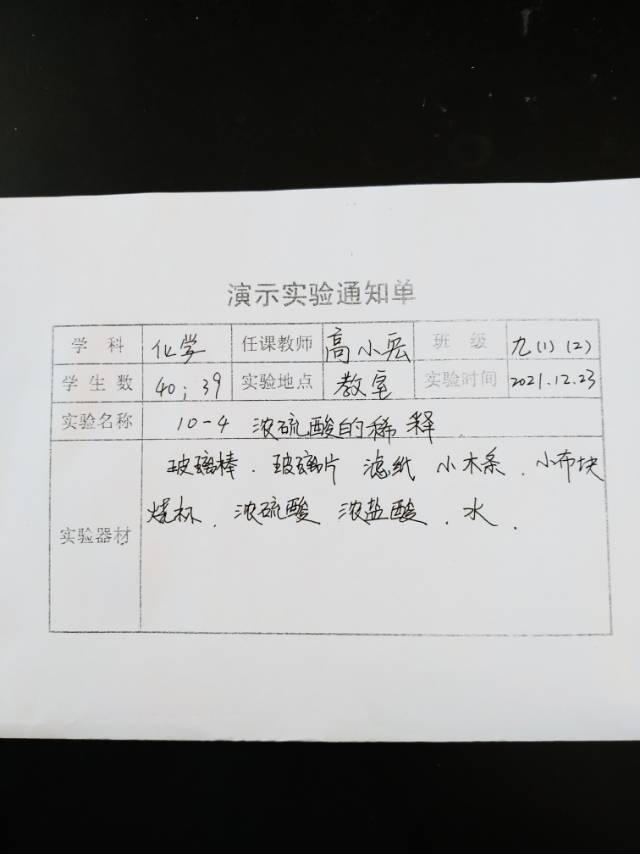 演示实验通知单
学 科 化学 任课教师 高小宏 班 级 九(1)(2)
学生数 40；39 实验地点 教室 实验时间 2021.12.23
实验名称 10-4 浓硫酸的稀释
玻璃棒．玻璃片 滤纸 小木条．小布块
实验器材 烧杯．浓硫酸 浓盐酸．水．